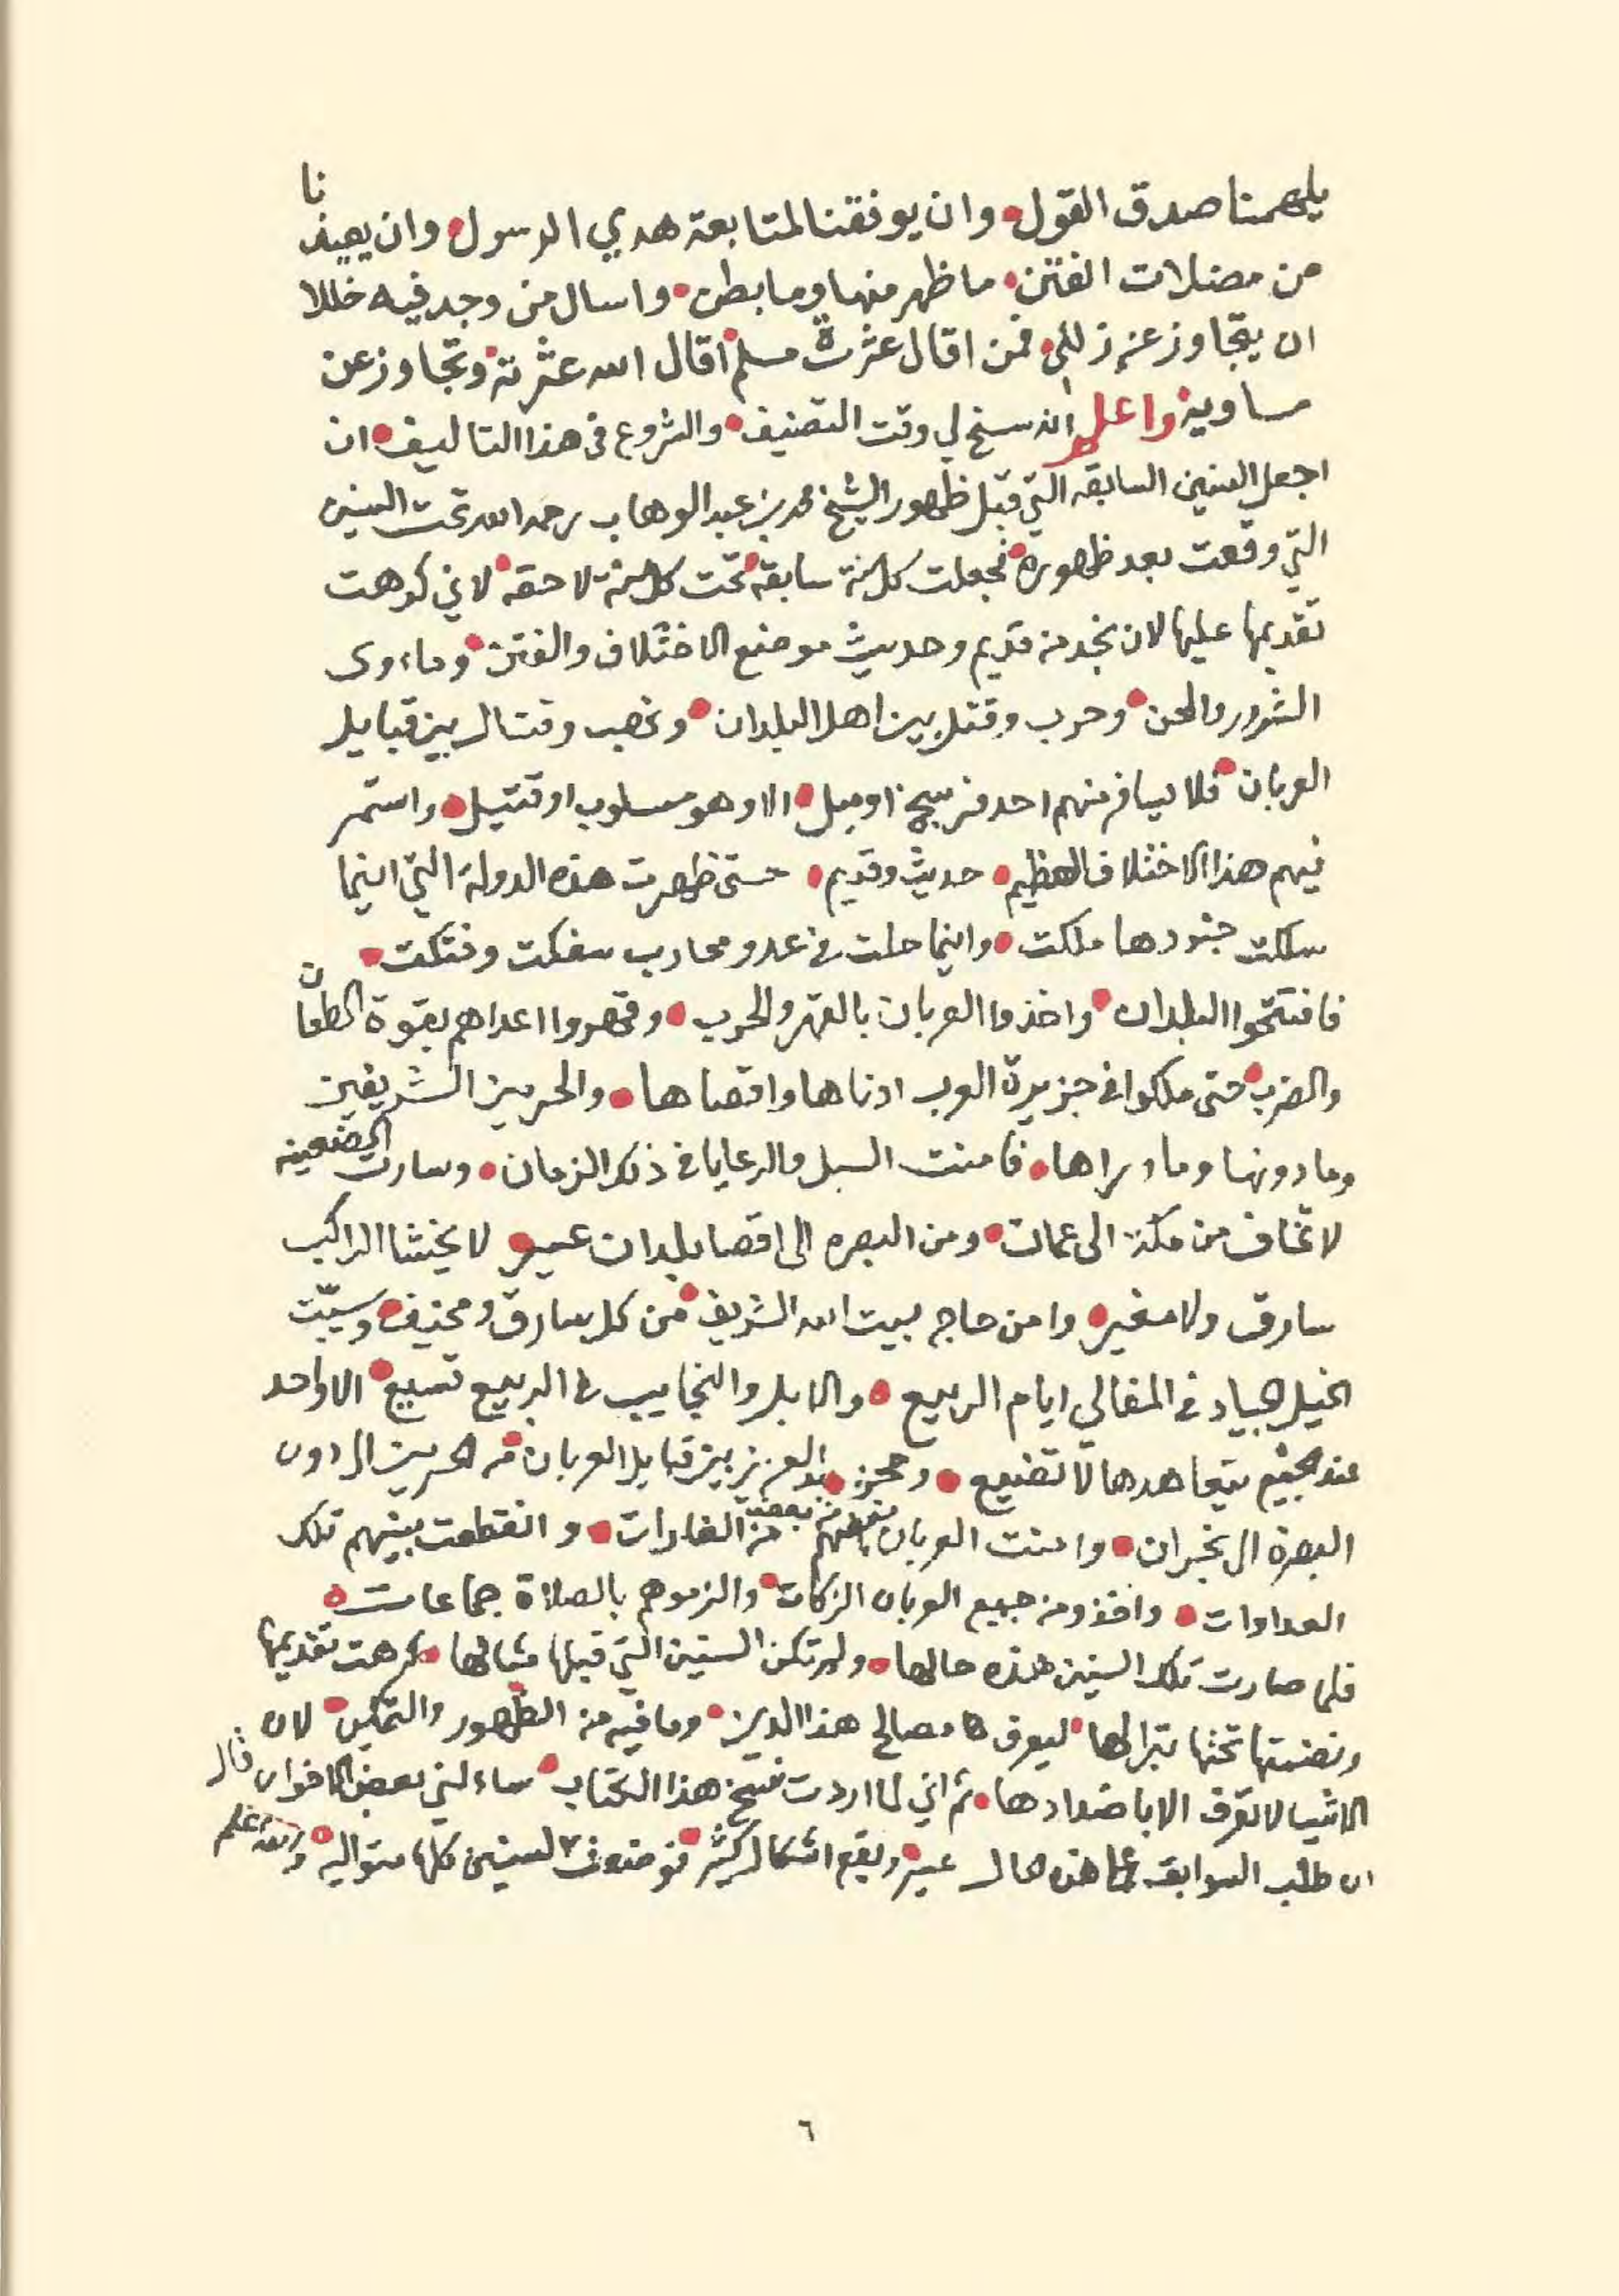 يلهمنا صدق القول وان يوفقنا لمتابعة هدي الرسول وان يعيذنا
من مضلات الفتن ما ظهر منها وما بطن واسال من وجد فيه خللا
ان يتجاوز عن زللي فمن اقال عثرت مسلم اقال الله عثرته وتجاوز عن
مساويه واعلم انه سنح لي وقت التصنيف والشروع في هذا التاليف ان
اجعل السنين السابقه التي قبل ظهور الشيخ محمد بن عبد الوهاب رحمه الله تحت السنين
التي وقعت بعد ظهوره فجعلت كل سنة سابقة تحت كل سنة لاحقه لاني كرهت
تقديمها عليها لان نجد من قديم وحديث موضع الاختلاف والفتن وماءوى
الشرور والمحن وحرب وقتل بين اهل البلدان ونهب وقتال بين قبايل
العربان فلا يسافر منهم احد فرسخ او ميل الا وهو مسلوب او قتيل واستمر
فيهم هذا الاختلاف العظيم حديث وقديم حتى ظهرت هذه الدولة التي اينما
سلكت جنودها ملكت واينما حلت في عدو محارب سفكت وفتكت
فافتتحوا البلدان واخذوا العربان بالقهر والحرب وقهروا اعداهم بقوة الطعان
والضرب حتى ملكوا في جزيرة العرب ادناها واقصاها والحرمين الشريفين
وما دونها وما وراها فامنت السبل والرعايا في ذلك الزمان وسارت الضعينه
لا تخاف من مكة الى عمان ومن البصره الى اقصا بلدان عسير لا يخشا الراكب
سارق ولا مغير وامن حاج بيت الله الشريف من كل سارق ومخيف وسيّبت
الخيل الجياد في المفالي ايام الربيع والابل والنجايب في الربيع تسيع الا واحد
عند الجميع يتعاهدها لا تضيع وحجز عبد العزيز بين قبايل العربان من الحرمين الى دون
البصرة الى نجران وامنت العربان بعضهم من بعض من الغارات وانقطعت بينهم تلك
العداوات واخذو من جميع العربان الزكات والزموهم بالصلاة جماعات
فلما صارت تلك السنين هذه حالها ولم تكن السنين التي قبلها مثالها كرهت تقديمها
وضمنتها تحتها تبرا لها ليعرف مصالح هذا الدين وما فيه من الظهور والتمكين لان
الاشيا لا تعرف الا باضدادها ثم اني لما اردت نسخ هذا الكتاب ساءلني بعض الاخوان قال
ان طلب السوابق على هذه الحال عسير ويقع اشكال كثير فوضعت السنين كلها متواليه والله اعلم
٦